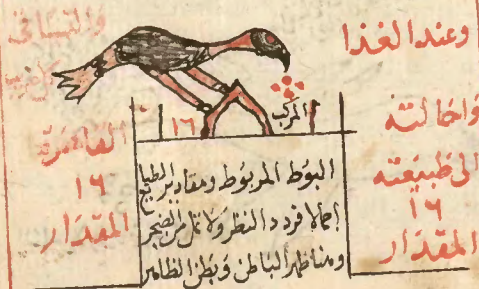 وعند الغذا
واحالته
الى طبيعته
١٦
المقدار
المركب
١٦
البوط المربوط ومقادير الطبايع
اجمالا فردد النظر ولا تمل من الضجر
ومناظهر الباطن وبطن الظاهر
والتساقى
القاهرة
١٦
المقدار